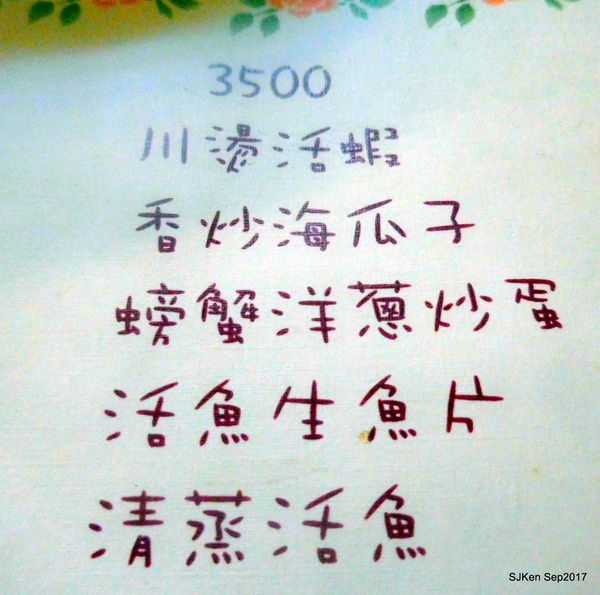 3500
川燙活蝦
香炒海瓜子
螃蟹洋蔥炒蛋
活魚生魚片
清蒸活魚
SJKen Sep2017